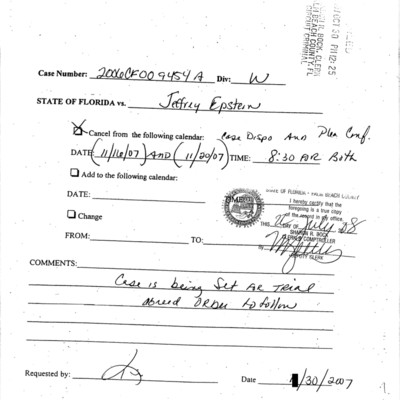 FILED
07 OCT 30 PM 12:25
SHARON R. BOCK, CLERK
PALM BEACH COUNTY, FL
CIRCUIT CRIMINAL
Case Number: 2006CF009454A Div: W
STATE OF FLORIDA vs. Jeffrey Epstein
Cancel from the following calendar: Case Dispo And Plea Conf.
DATE: (11/16/07) AND (11/20/07) TIME: 8:30 FOR Both
Add to the following calendar:
DATE: TIME:
STATE OF FLORIDA • PALM BEACH COUNTY
I hereby certify that the
foregoing is a true copy
of the record in my office.
THIS DAY OF July 08
SHARON R. BOCK
CLERK & COMPTROLLER
By
DEPUTY CLERK
Change
FROM: TO:
COMMENTS:
Case is being Set for Trial
agreed ORDER to follow
Requested by: Date /30/2007